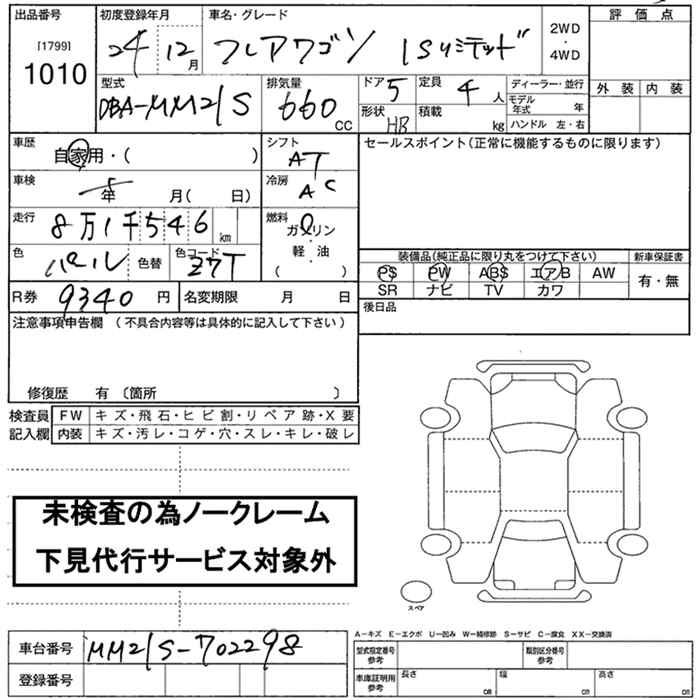 出品番号 初度登録年月 車名・グレード 評価点
[1799] 1010 24 12月 フレアワゴン ISリミテッド 2WD・4WD 外装 内装
型式 排気量 ドア 5 定員 4人 ディーラー・並行
DBA-MM21S 660 CC 形状 HB 積載 kg モデル年式 年
ハンドル 左・右
車歴 自家用・( ) シフト AT セールスポイント(正常に機能するものに限ります)
車検 年 月( 日) 冷房 AC
走行 8万1千546 km 燃料 ガソリン・軽・油 ( )
色 パール 色替 色コード Z7T 装備品(純正品に限り丸をつけて下さい) 新車保証書
PS PW ABS エアB AW 有・無
SR ナビ TV カワ
R券 9340円 名変期限 月 日 後日品
注意事項申告欄 (不具合内容等は具体的に記入して下さい)
修復歴 有 〔箇所 〕
検査員記入欄 FW キズ・飛石・ヒビ割・リペア跡・X要
内装 キズ・汚レ・コゲ・穴・スレ・キレ・破レ
未検査の為ノークレーム
下見代行サービス対象外
スペア
A-キズ E-エクボ U-凹み W-補修跡 S-サビ C-腐食 XX-交換済
車台番号 MM21S-702298 型式指定番号 参考 類別区分番号 参考
登録番号 車庫証明用 参考 長さ cm 幅 cm 高さ cm